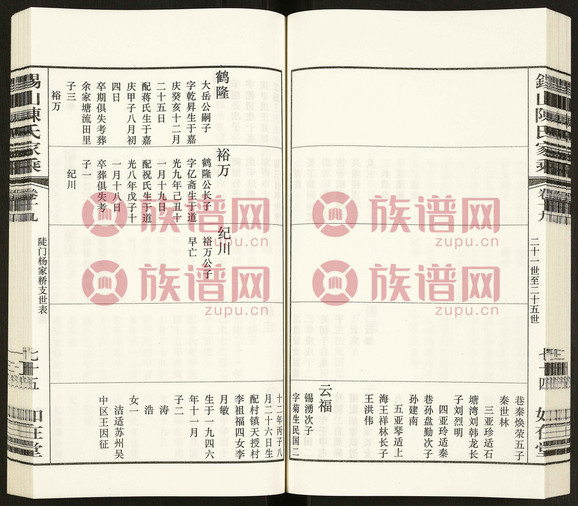 錫山陳氏家乘
卷十九
二十一世至二十五世
七十四
如在堂
巷秦焕荣五子
秦世林
三亚珍适石
塘湾刘韩龙长
子刘烈明
四亚玲适秦
巷孙盘勤次子
孙建南
五亚琴适上
海王祥林长子
王洪伟
云福
锡湧次子
字菊生民国二
十二年丙子八
月二十六日生
配村镇天授村
李祖福四女李
月敏
生于一九四六
年十一月
子二
涛
浩
女一
洁适苏州吴
中区王因征
鹤隆
大岳公嗣子
字乾昇生于嘉
庆癸亥十二月
二十五日
配蒋氏生于嘉
庆甲子八月初
四日
卒期俱失考葬
余家塘流田里
子三
裕万
裕万
鹤隆公长子
字亿斋生于道
光九年己丑十
一月十九日
配祝氏生于道
光八年戊子十
一月十八日
卒葬俱失考
子一
纪川
纪川
裕万公子
早亡
錫山陳氏家乘
卷十九
陡门杨家桥支世表
七十五
如在堂
族谱网
zupu.cn
族谱网
zupu.cn
族谱网
zupu.cn
族谱网
zupu.cn